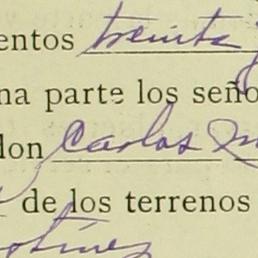 entos treinta y
na parte los seño
don Carlos M
de los terrenos
otínez